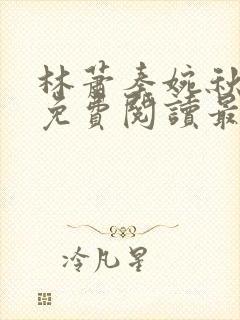 林蕭秦婉秋
免費閱讀最
冷凡星